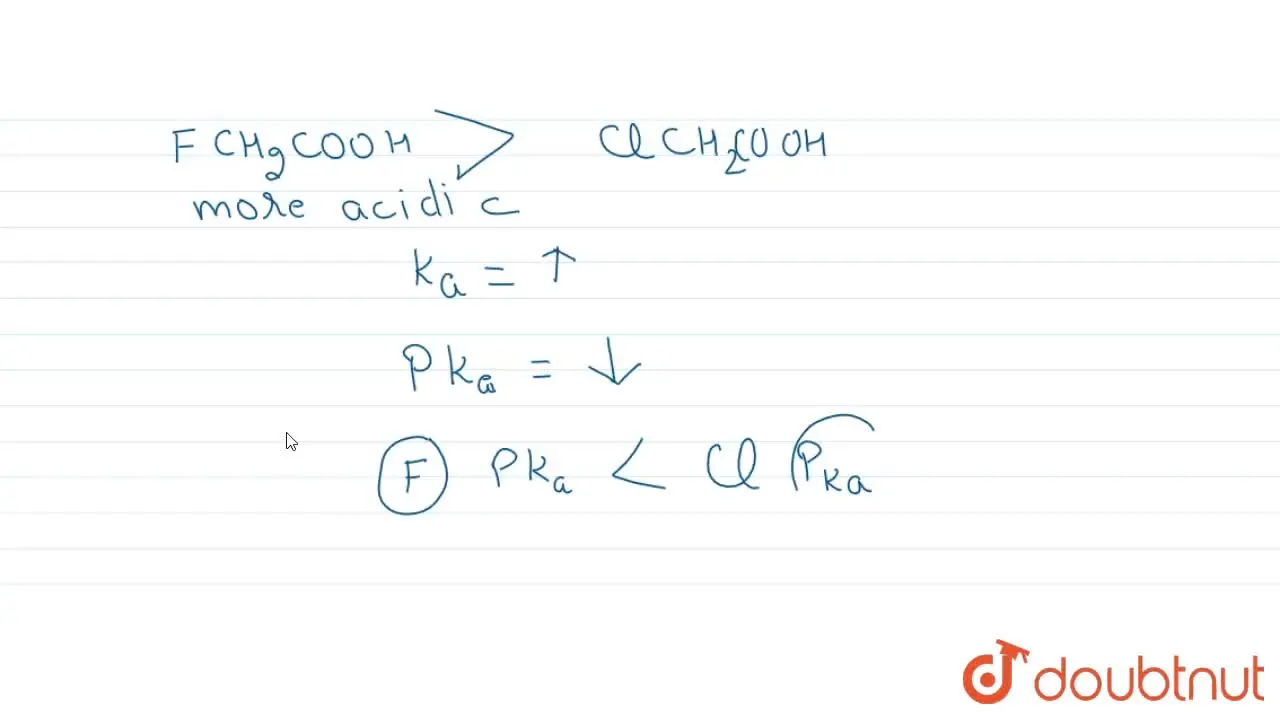 FCH2COOH > ClCH2COOH
more acidic
Ka = ↑
Pka = ↓
F Pka < Cl Pka
doubtnut